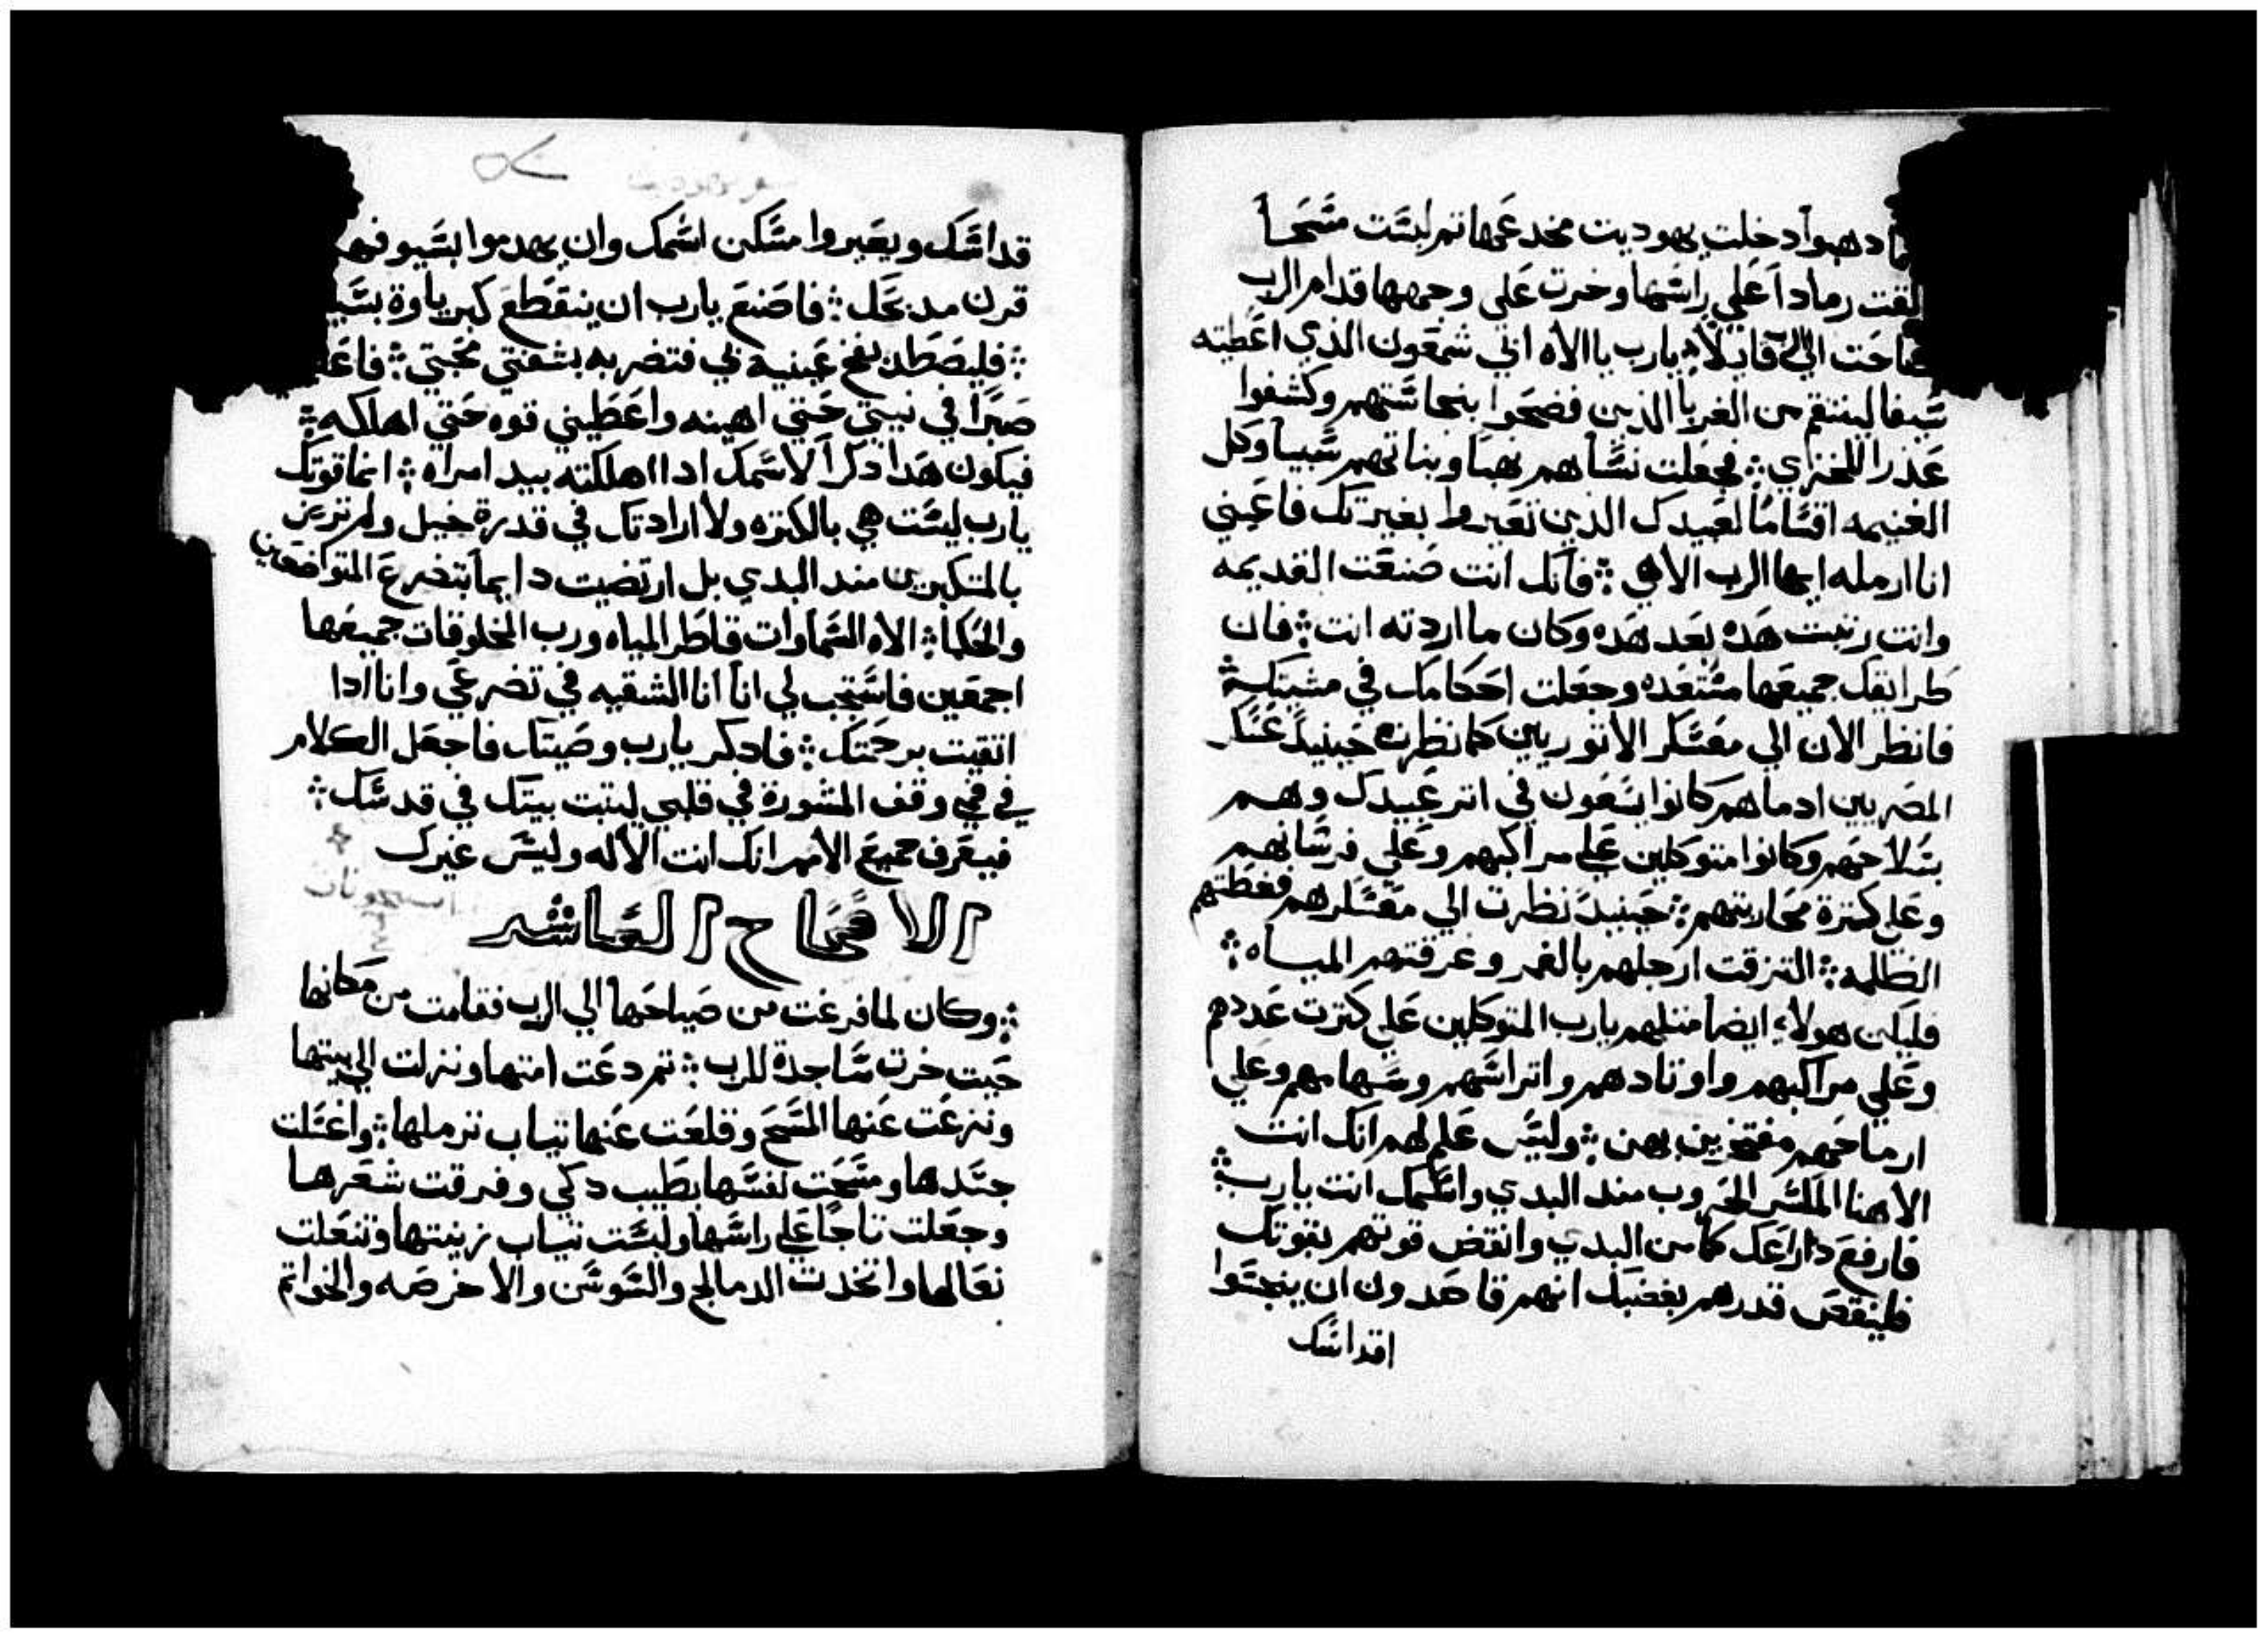 دهبوا دخلت يهوديت مخدعها تم لبست مسحاً
القت رماداً علي راسها وخرت علي وجهها قدام الرب
صاحت الي قايلاً يارب يا الاه ابي شمعون الذي اعطيته
سيفا لينتقم من الغربا الذين فضحوا بنجاستهم وكشفوا
عذرا للخزي ܀ فجعلت نساهم نهباً وبناتهم سبياً وكل
الغنيمه اقساماً لعبيدك الذين تغيروا بغيرتك فاعيني
انا ارمله ايها الرب الاهي ܀ فانك انت صنعت القديمه
وانت رتبت هده بعد هده وكان ما اردته انت ܀ فان
طرايقك جميعها مستعده وجعلت احكامك في مشيتك ܀
فانظر الان الي معسكر الاتوريين كما نظرت حينيد عسكر
المصريين ادما هم كانوا يسعون في اتر عبيدك وهم
بسلاحهم وكانوا متوكلين علي مراكبهم وعلي فرسانهم
وعلي كترة محاربيهم ܀ حينيد نظرت الي معسكرهم فغطتهم
الظلمه ܀ التزقت ارجلهم بالغمر وغرقتهم المياه ܀
فليكن هولاء ايضا متلهم يارب المتوكلين علي كترت عددهم
وعلي مراكبهم واوتادهم واتراسهم وسهامهم وعلي
ارماحهم مفتخرين بهن ܀ وليس علم لهم انك انت
الاهنا المكسر الحروب مند البدي واسمك انت يارب ܀
فارفع داراعك كما من البدي وانقض قوتهم بقوتك
فلينقص قدرهم بغضبك انهم قاصدون ان ينجسوا
اقداسك
قداسك ويغيروا مسكن اسمك وان يهدموا بسيوفهم
قرن مدبحك ܀ فاصنع يارب ان ينقطع كبرياوة
܀ فليصطد بفخ عينيه في فتضربه بشفتي محبتي ܀
صبراً في نيتي حتي اهينه واعطيني قوه حتي اهلكه ܀
فيكون هدا دكراً لاسمك ادا اهلكته بيد امراه ܀ انما قوتك
يارب ليست هي بالكتره ولا ارادتك في قدرة خيل ولم ترتض
بالمتكبرين مند البدي بل ارتضيت دايماً بتضرع المتواضعين
والحكما ܀ الاه السماوات فاطر المياه ورب المخلوقات جميعها
اجمعين فاستجب لي انا انا الشقيه في تضرعي وانا ادا
اتقيت برحمتك ܀ فادكر يارب وصيتك فاجعل الكلام
في فمي وقف المشورة في قلبي ليتبت بيتك في قدسك ܀
فيعرف جميع الامم انك انت الاله وليس غيرك
الاصحاح العاشر
܀ وكان لما فرغت من صياحها الي الرب فقامت من مكانها
حيت خرت ساجدة للرب ܀ تم دعت امتها ونزلت الي بيتها
ونزعت عنها المسح وقلعت عنها تياب ترملها ܀ واغسلت
جسدها ومسحت نفسها بطيب دكي وفرقت شعرها
وجعلت تاجاً علي راسها ولبست تياب زينتها وتنعلت
نعالها واتخدت الدمالج والسوسن والاخرصه والخواتم